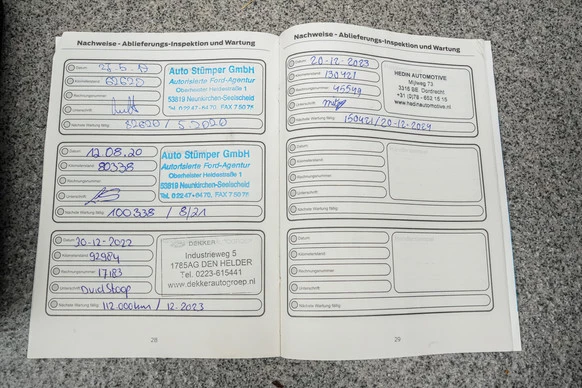 Nachweise - Ablieferungs-Inspektion und Wartung
Datum 27.5.19
Kilometerstand 62620
Rechnungsnummer
Unterschrift
Nächste Wartung fällig 82620 / 5.2020
Auto Stümper GmbH
Autorisierte Ford-Agentur
Oberheister Heidestraße 1
53819 Neunkirchen-Seelscheid
Tel. 02247-6470, FAX 75075
Datum 12.08.20
Kilometerstand 80338
Rechnungsnummer
Unterschrift
Nächste Wartung fällig 100338 / 8/21
Auto Stümper GmbH
Autorisierte Ford-Agentur
Oberheister Heidestraße 1
53819 Neunkirchen-Seelscheid
Tel. 02247-6470, FAX 75075
Datum 20-12-2022
Kilometerstand 92984
Rechnungsnummer 17183
Unterschrift
Nächste Wartung fällig 112.000km / 12-2023
DEKKER
Industrieweg 5
1785AG DEN HELDER
Tel. 0223-615441
www.dekkerautogroep.nl
28
Nachweise - Ablieferungs-Inspektion und Wartung
Datum 20-12-2023
Kilometerstand 130421
Rechnungsnummer 45549
Unterschrift
Nächste Wartung fällig 150421/20-12-2024
HEDIN AUTOMOTIVE
Mijlweg 73
3316 BE Dordrecht
+31 (0)78 - 652 15 15
www.hedinautomotive.nl
Datum
Kilometerstand
Rechnungsnummer
Unterschrift
Nächste Wartung fällig
Datum
Kilometerstand
Rechnungsnummer
Unterschrift
Nächste Wartung fällig
29